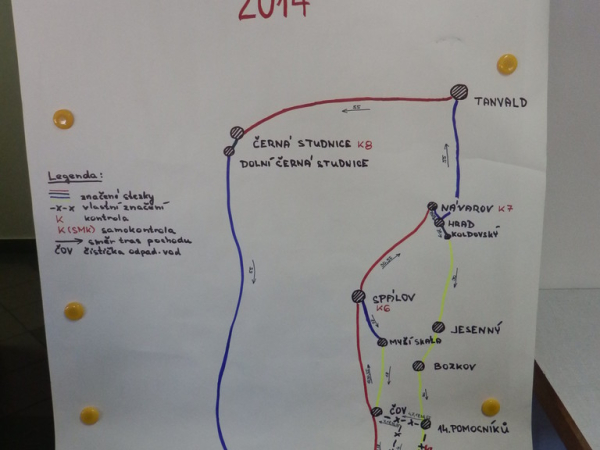 2014
TANVALD
ČERNÁ STUDNICE K8
DOLNÍ ČERNÁ STUDNICE
Legenda:
značené stezky
-x-x vlastní značení
K kontrola
K(SMK) samokontrola
směr tras pochodu
ČOV čistička odpad. vod
NÁVAROV K7
HRAD
KOLDOVSKÝ
SPÁLOV
K6
JESENNÝ
MYŠÍ SKÁLA
BOZKOV
ČOV
14. POMOCNÍKŮ